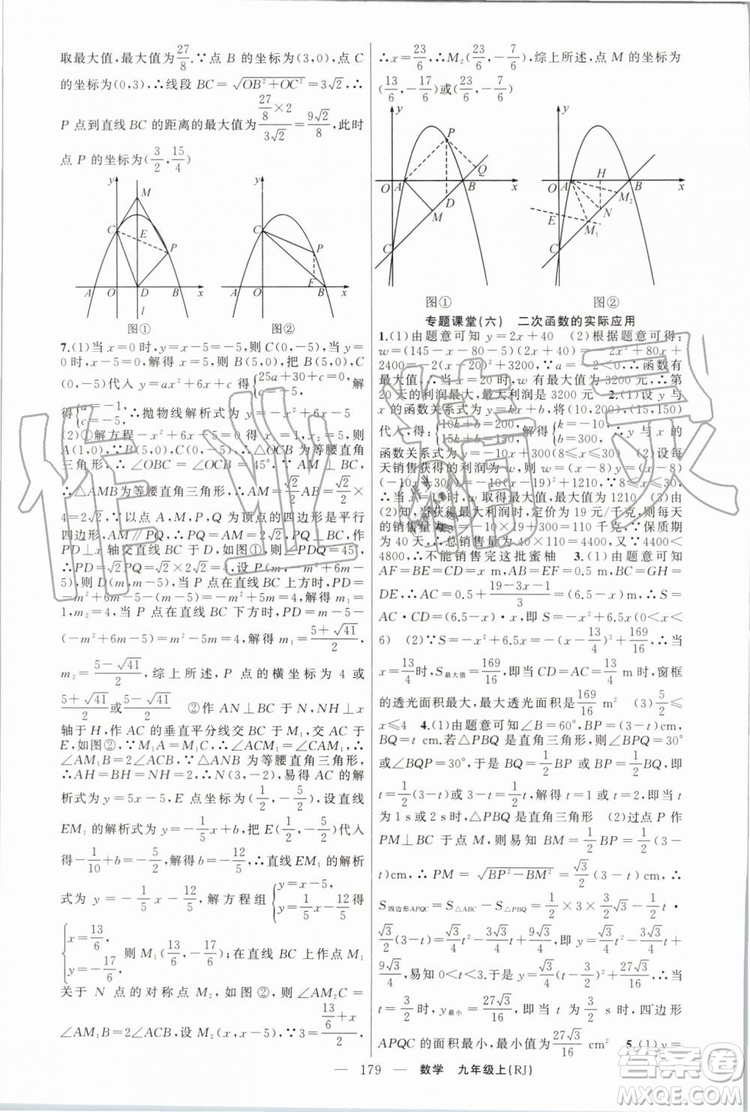 取最大值,最大值为27/8.∵点 B 的坐标为(3,0),点 C
的坐标为(0,3),∴线段 BC=√(OB²+OC²)=3√2,∴
P 点到直线 BC 的距离的最大值为(27/8×2)/(3√2)=9√2/8,此时
点 P 的坐标为(3/2,15/4)
图① 图②
7.(1)当 x=0 时,y=x-5=-5,则 C(0,-5),当 y=
0 时,x-5=0,解得 x=5,则 B(5,0),把 B(5,0),C(0,
-5)代入 y=ax²+6x+c 得{25a+30+c=0, c=-5,解
得{a=-1, c=-5,∴抛物线解析式为 y=-x²+6x-5
(2)①解方程-x²+6x-5=0 得 x₁=1,x₂=5,则
A(1,0),∵B(5,0),C(0,-5),∴△OCB 为等腰直
角三角形,∴∠OBC=∠OCB=45°,∵AM⊥BC,
∴△AMB为等腰直角三角形,∴AM=√2/2AB=√2/2×4
=2√2,∵以点 A,M,P,Q 为顶点的四边形是平行
四边形,AM∥PQ,∴PQ=AM=2√2,PQ⊥BC,作
PD⊥x 轴交直线 BC 于 D,如图①,则∠PDQ=45°,
∴PD=√2PQ=√2×2√2=4,设 P(m,-m²+6m-
5),则 D(m,m-5),当 P 点在直线 BC 上方时,PD=
-m²+6m-5-(m-5)=-m²+5m=4,解得 m₁=
1,m₂=4,当 P 点在直线 BC 下方时,PD=m-5-
(-m²+6m-5)=m²-5m=4,解得 m₁=(5+√41)/2,
m₂=(5-√41)/2,综上所述,P 点的横坐标为 4 或
(5+√41)/2或(5-√41)/2 ②作 AN⊥BC 于 N,NH⊥x
轴于 H,作 AC 的垂直平分线交 BC 于 M₁,交 AC 于
E(如图②),∵M₁A=M₁C,∴∠ACM₁=∠CAM₁,
∴∠AM₁B=2∠ACB,∵△ANB 为等腰直角三角形,
∴AH=BH=NH=2,∴N(3,-2),易得 AC 的解析
式为 y=5x-5,E 点坐标为(1/2,-5/2),设直线
EM₁ 的解析式为 y=-1/5x+b,把 E(1/2,-5/2)代入
得-1/10+b=-5/2,∴b=-12/5,∴直线 EM₁ 的解析
式为 y=-1/5x-12/5,解方程组{y=x-5, y=-1/5x-12/5得
{x=13/6, y=-17/6,则 M₁(13/6,-17/6);在直线 BC 上作点 M₁
关于 N 点的对称点 M₂,如图②,则∠AM₂C=
∠AM₁B=2∠ACB,设 M₂(x,x-5),∵3=(13/6+x)/2,
∴x=23/6,∴M₂(23/6,-7/6),综上所述,点 M 的坐标为
(13/6,-17/6)或(23/6,-7/6)
图① 图②
专题课堂(六) 二次函数的实际应用
1.(1)由题意可知 y=2x+40 (2)根据题意可得:
w=(145-x-80-5)y=(60-x)(2x+40)=-2x²+80x+
2400=-2(x-20)²+3200,∵a=-2<0,∴函数有
最大值,∴当 x=20 时,w 有最大值为 3200 元,∴第
20 天的利润最大,最大利润为 3200 元 2.(1)设 y 与
x 的函数关系式为 y=kx+b,将(10,200),(15,150)
函数关系式为 y=-10x+300 (2)设每天
最大值为 1210 (3)
由(2)知,当获得最大利润时,定价为 19 元/千克,则每天
的销售量为 y=-10×19+300=110 千克,∵保质期
为 40 天,∴总销售量为 40×110=4400,又∵4400<
4800,∴不能销售完这批蜜柚 3.(1)由题意可知
AF=BE=CD=x m,∴AC=DF=AD+
DE,∴AC=0.5+(19-3x-1)/3=(6.5-x) m,∴S=
AC·CD=(6.5-x)·x,即 S=-x²+6.5x(0<x<
6) (2)∵S=-x²+6.5x=-(x-13/4)²+169/16,∴当 x=
13/4时,S最大值=169/16,即当 CD=AC=13/4 m 时,窗框
的透光面积最大,最大透光面积为169/16 m² (3)5/2≤x
≤4 4.(1)由题意可知∠B=60°,BP=(3-t)cm,
BQ=t cm.若△PBQ 是直角三角形,则∠BPQ=30°
或∠BQP=30°,于是 BQ=1/2BP 或 BP=1/2BQ,即
t=1/2(3-t)或 3-t=1/2t.解得 t=1 或 t=2,即当 t
为 1 s 或 2 s 时,△PBQ 是直角三角形 (2)过点 P 作
PM⊥BC 于点 M,则易知 BM=1/2BP=1/2(3-
t)cm,∴PM=√(BP²-BM²)=√3/2(3-t)cm,∴
S四边形APQC=S△ABC-S△PBQ=1/2×3×3/2√3-1/2t·
√3/2(3-t)=√3/4t²-3√3/4t+9√3/4,即 y=√3/4t²-3√3/4t+
9√3/4,易知 0<t<3,∴y=√3/4t²-3√3/4t+9√3/4=√3/4(t-
3/2)²+27√3/16,∴当 t=3/2时,y最小=27√3/16,即四边形
APQC 的面积最小,最小面积为27√3/16 cm² 5.(1)y=
— 179 — 数学 九年级上(RJ)
作业精灵
答案圈